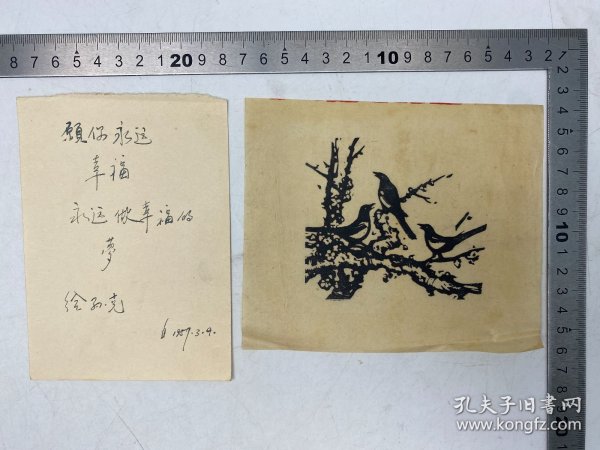 8 7 6 5 4 3 2 1 20 9 8 7 6 5 4 3 2 1 10 9 8 7 6 5 4 3 2 1
1 2 3 4 5 6 7 8 9 10 1 2 3 4
願你永远
幸福
永远做幸福的
夢
给孙克
1957.3.9.
孔夫子旧书网
www.kongfz.com